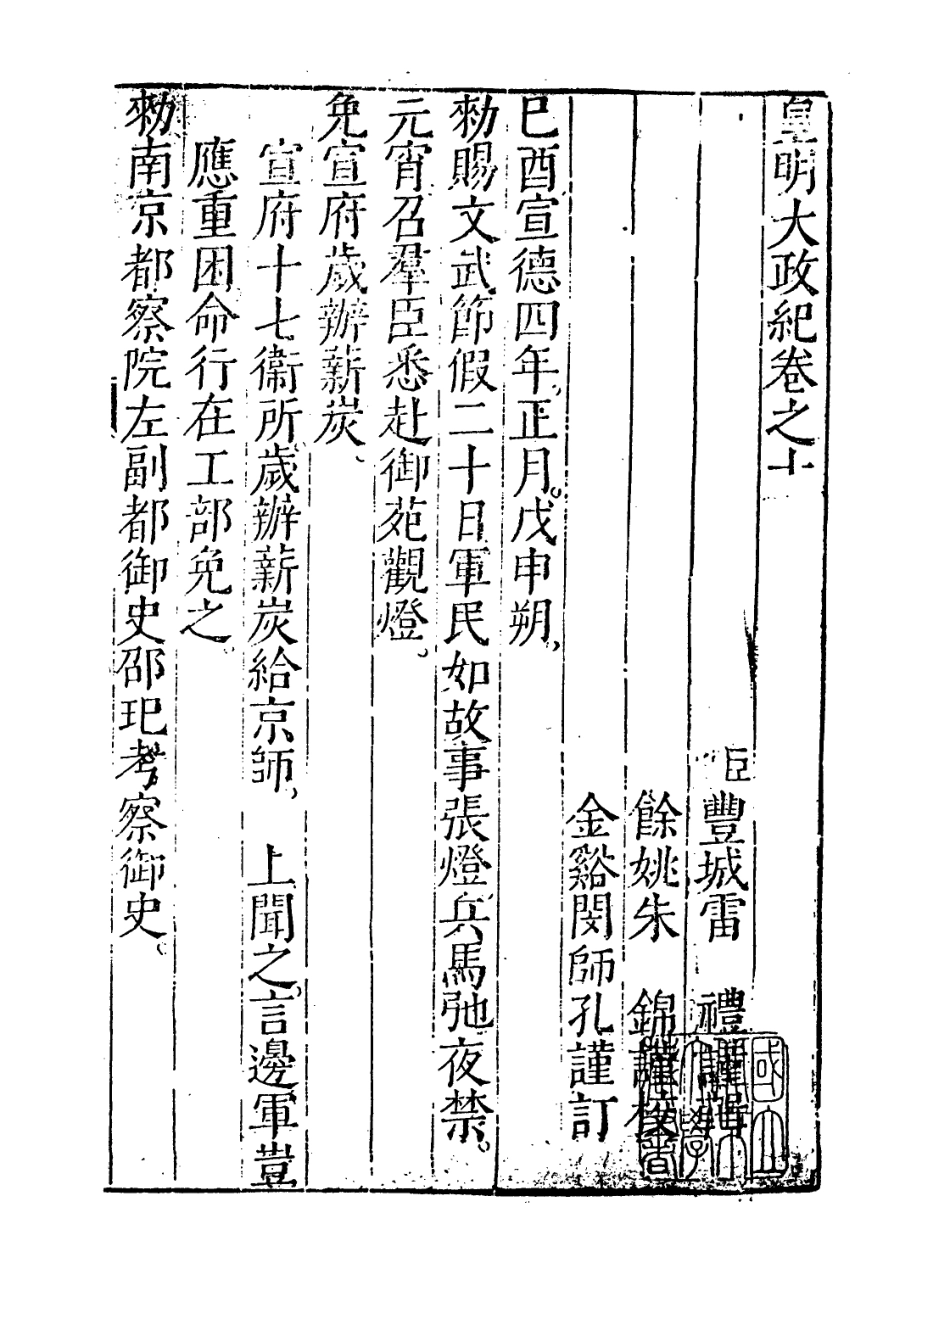 皇明大政紀卷之十
臣豐城雷　禮謹輯
餘姚朱　錦謹校
金谿閔師孔謹訂
巳酉宣德四年正月。戊申朔、
勑賜文武節假二十日軍民如故事張燈兵馬弛夜禁。
元宵召羣臣悉赴御苑觀燈。
免宣府歲辦薪炭、
宣府十七衞所歲辦薪炭給京師、　上聞之言邊軍豈
應重困命行在工部免之。
勑南京都察院左副都御史邵玘考察御史。
國立